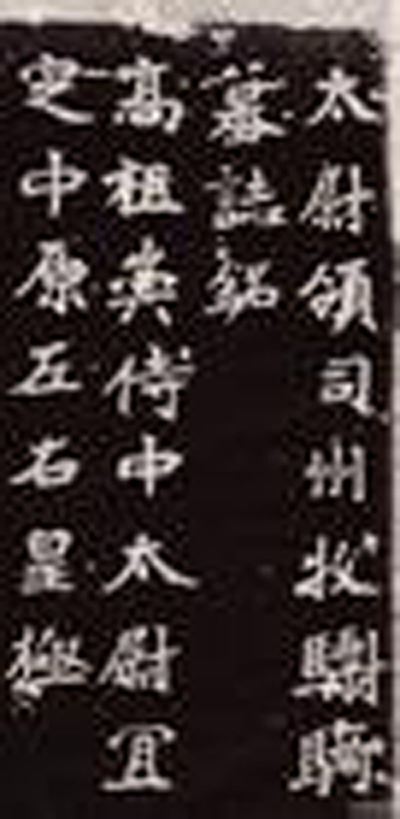 太尉領司州牧驃騎
墓誌銘
高祖崇侍中太尉宜
定中原左右皇極